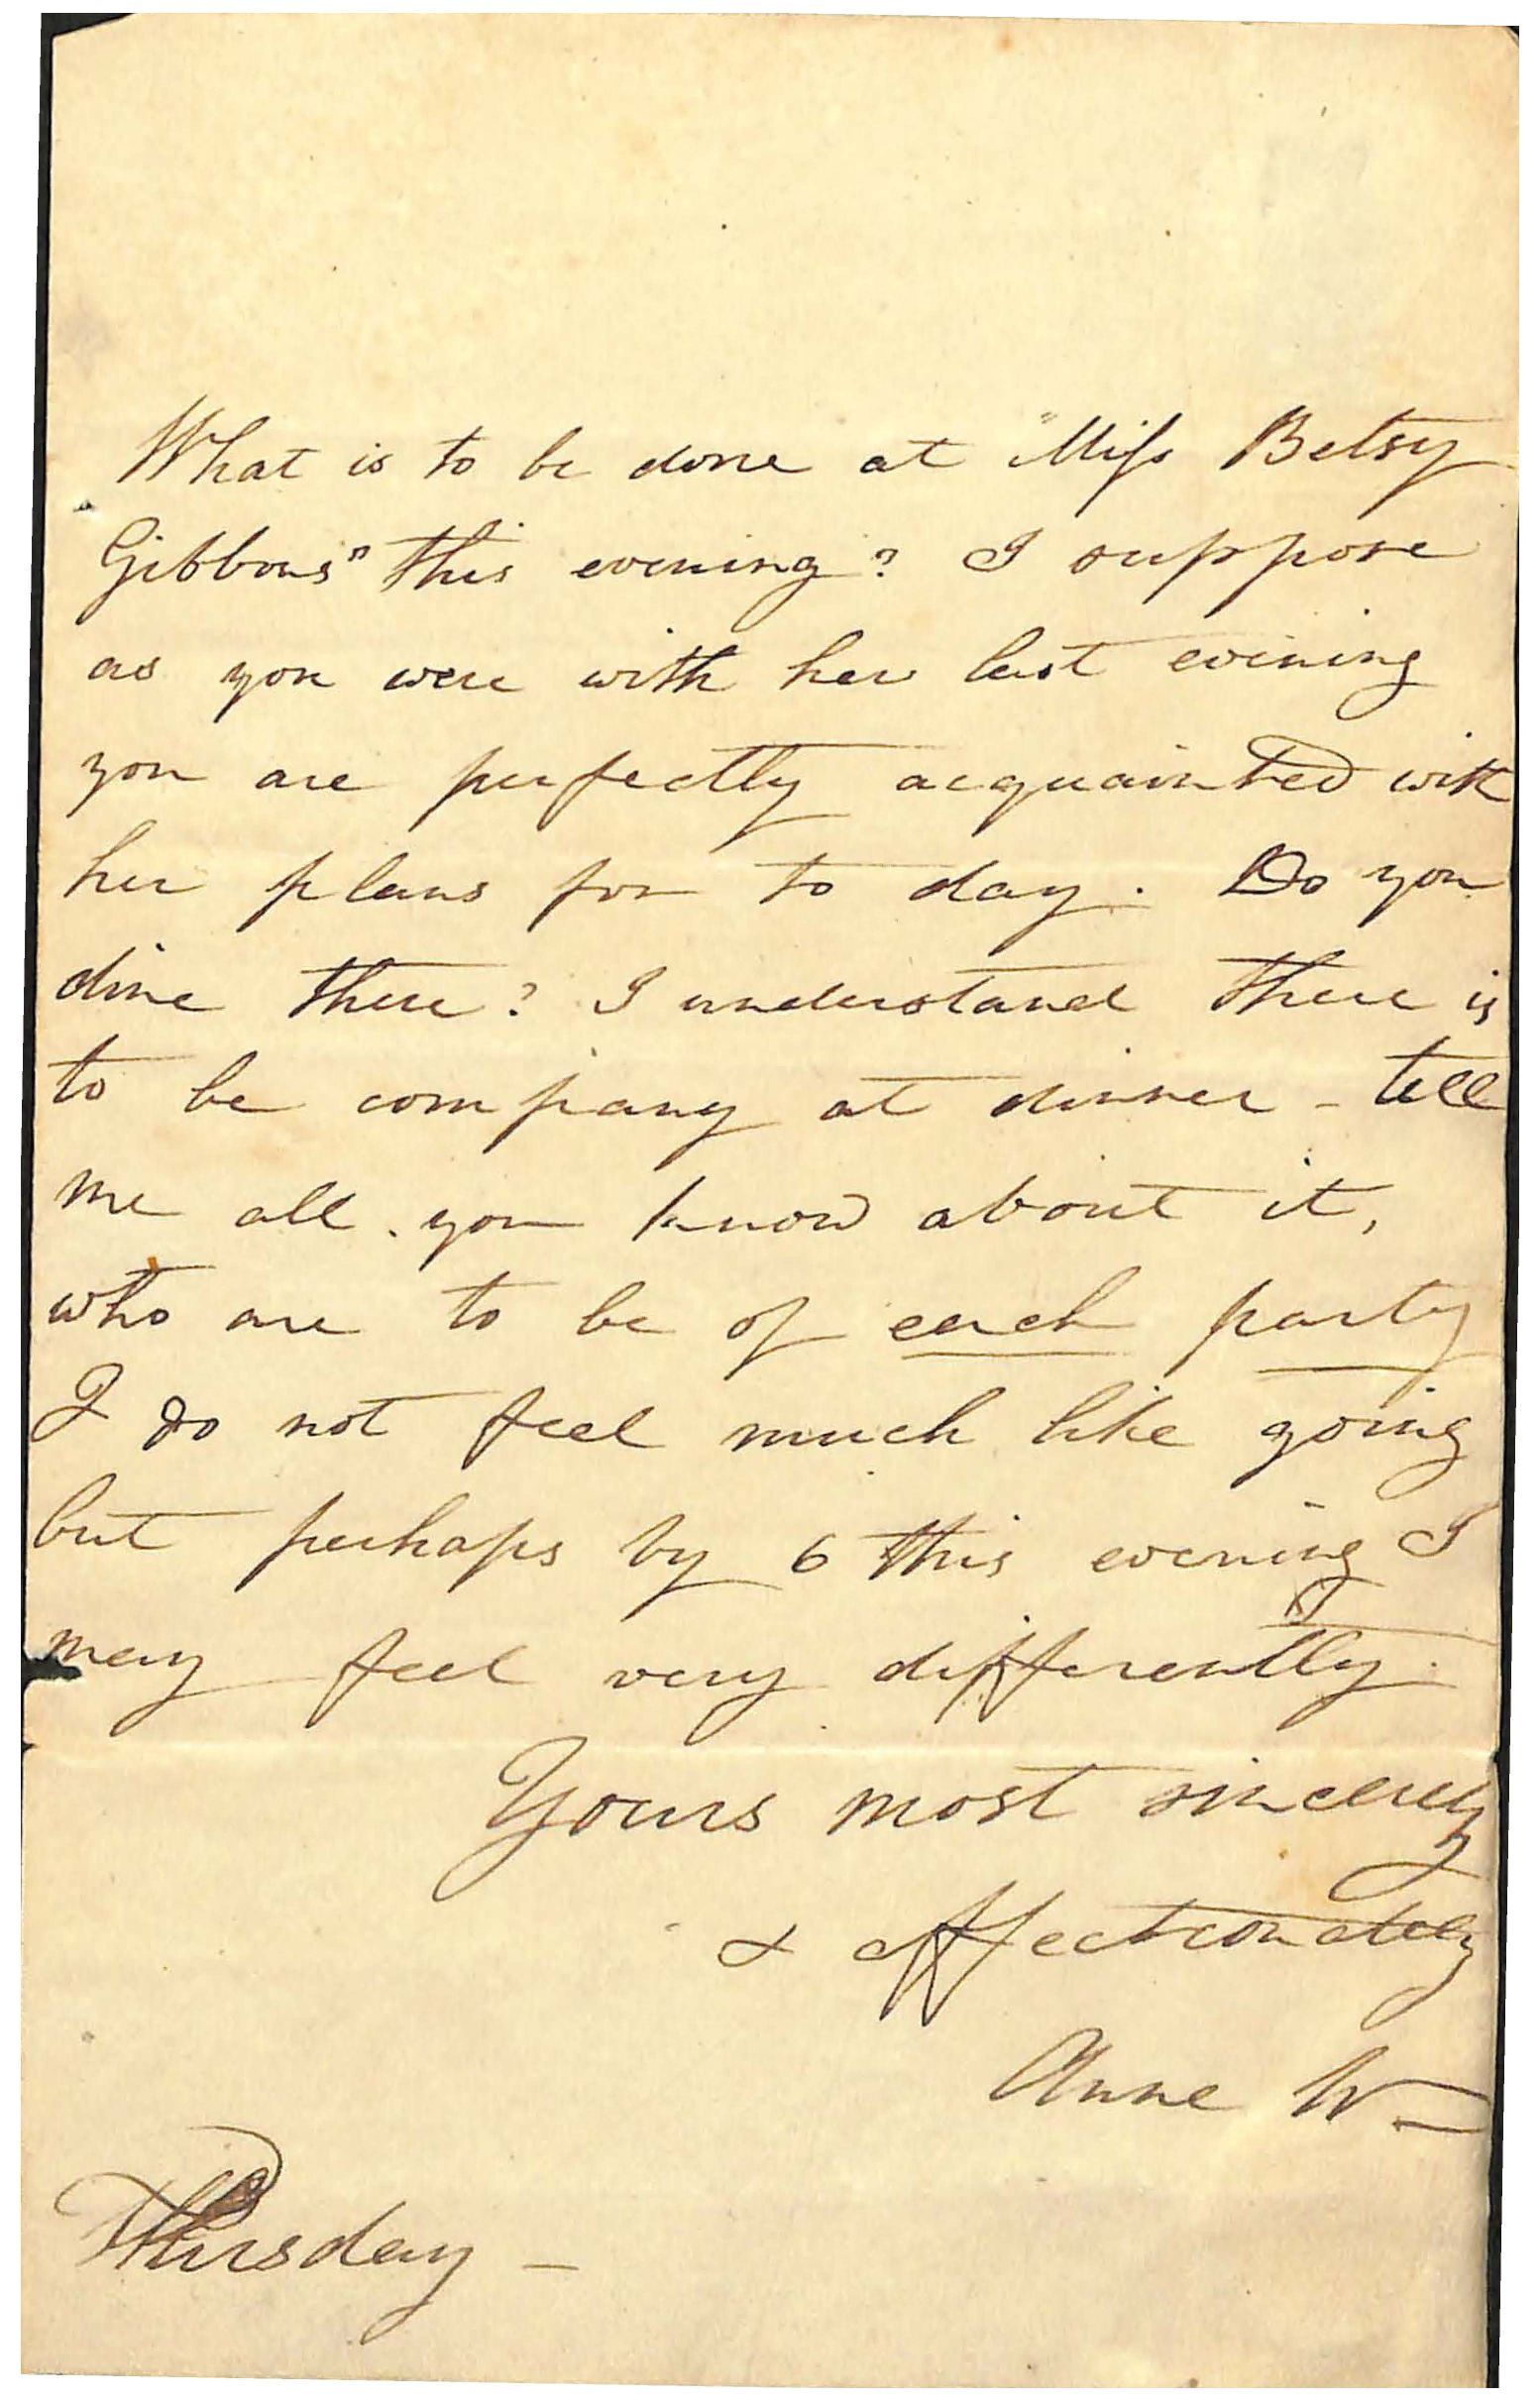 What is to be done at "Miss Betsy
Gibbons" this evening? I suppose
as you were with her last evening
you are perfectly acquainted with
her plans for to day. Do you
dine there? I understand there is
to be company at dinner - tell
me all you know about it,
who are to be of each party
I do not feel much like going
but perhaps by 6 this evening I
may feel very differently.
Yours most sincerely
& affectionately
Anne W—
Thursday —